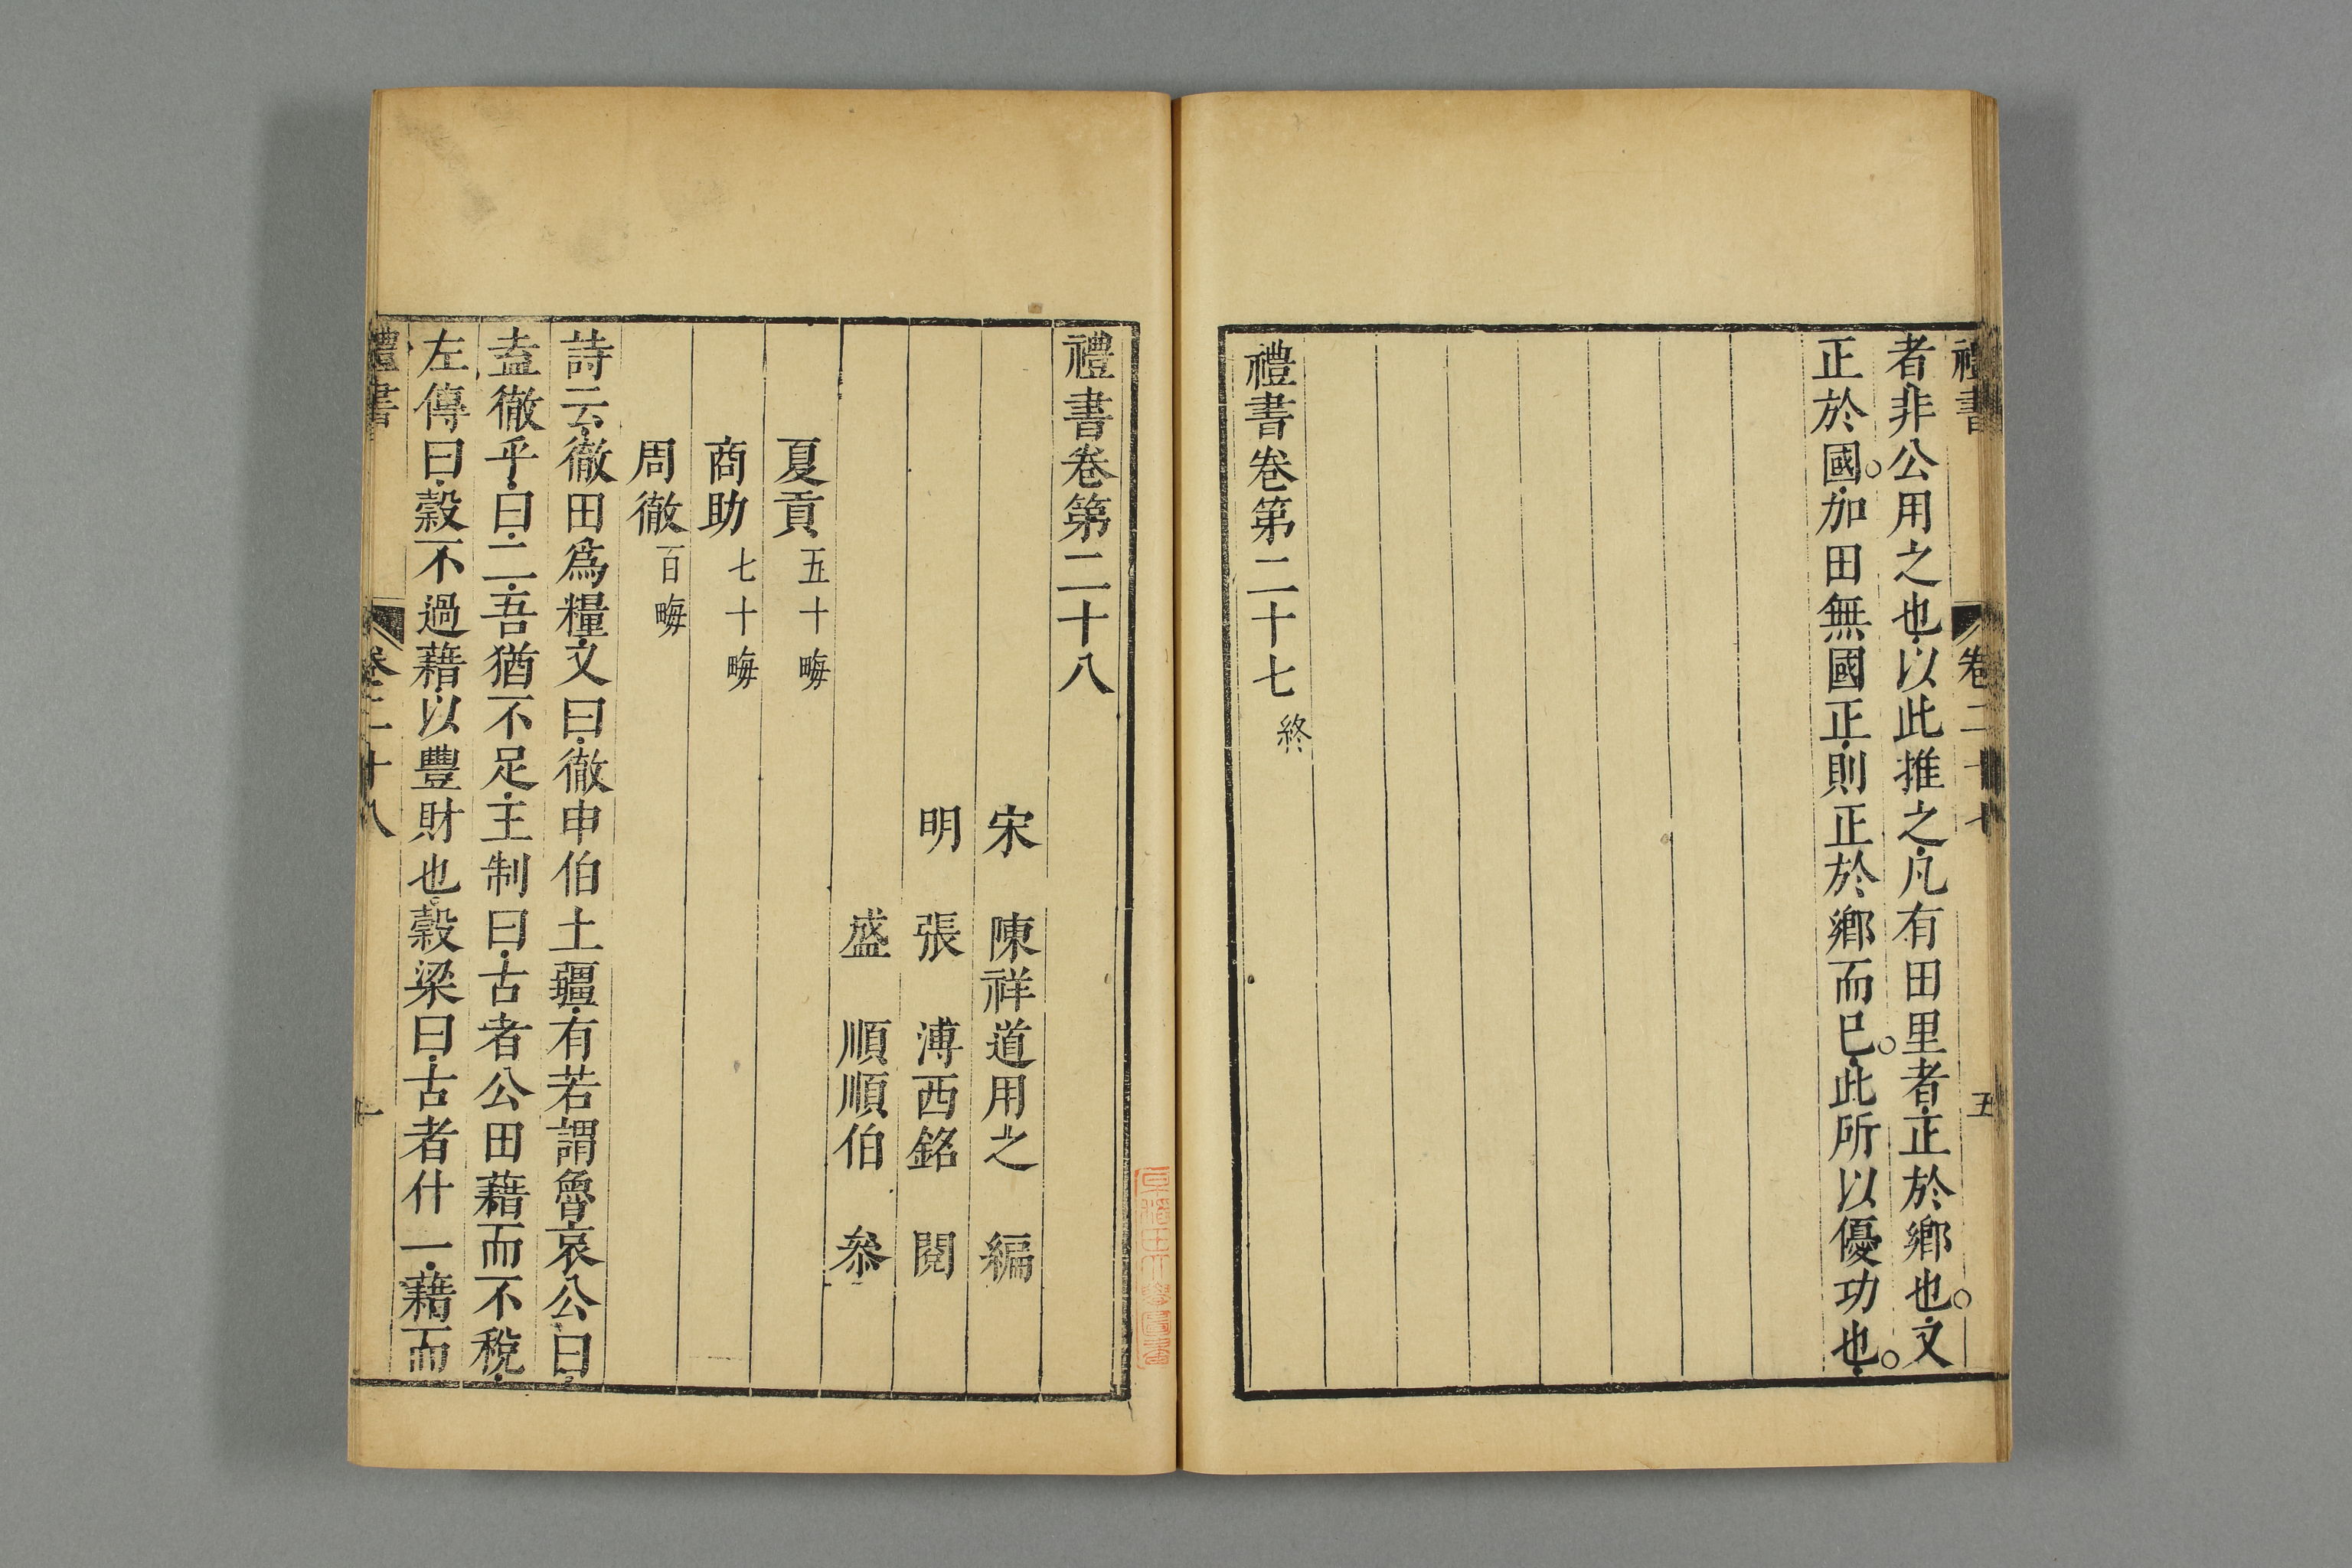 禮書 卷二十七 五
者非公用之也以此推之凡有田里者正於鄉也又
正於國加田無國正則正於鄉而已此所以優功也
禮書卷第二十七 終
禮書卷第二十八
宋 陳祥道用之 編
明 張 溥西銘 閱
盛 順順伯 叅
夏貢 五十畮
商助 七十畮
周徹 百畮
詩云徹田爲糧又曰徹申伯土疆有若謂魯哀公曰
盍徹乎曰二吾猶不足王制曰古者公田藉而不稅
左傳曰穀不過藉以豐財也穀梁曰古者什一藉而
禮書 卷二十八 一